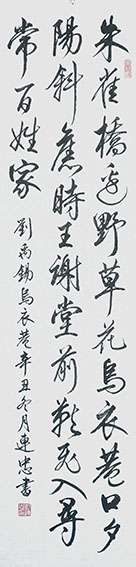 朱雀橋邊野草花烏衣巷口夕
陽斜舊時王謝堂前燕飛入尋
常百姓家
劉禹錫烏衣巷辛丑冬月連忠書